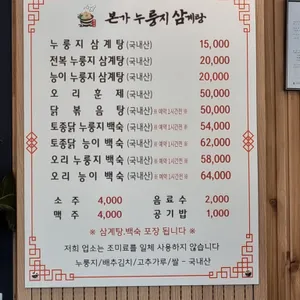 본가 누룽지 삼계탕
누룽지 삼계탕 (국내산) 15,000
전복 누룽지 삼계탕 (국내산) 20,000
능이 누룽지 삼계탕 (국내산) 20,000
오리 훈제 (국내산) 50,000
닭볶음탕 (국내산) ※ 예약 1시간전 ※ 50,000
토종닭 누룽지 백숙 (국내산) ※ 예약 1시간전 ※ 54,000
토종닭 능이 백숙 (국내산) ※ 예약 1시간전 ※ 62,000
오리 누룽지 백숙 (국내산) ※ 예약 1시간전 ※ 58,000
오리 능이 백숙 (국내산) ※ 예약 1시간전 ※ 64,000
소주 4,000 음료수 2,000
맥주 4,000 공기밥 1,000
※ 삼계탕,백숙 포장 됩니다 ※
저희 업소는 조미료를 일체 사용하지 않습니다
누룽지/배추김치/고추가루/쌀 - 국내산